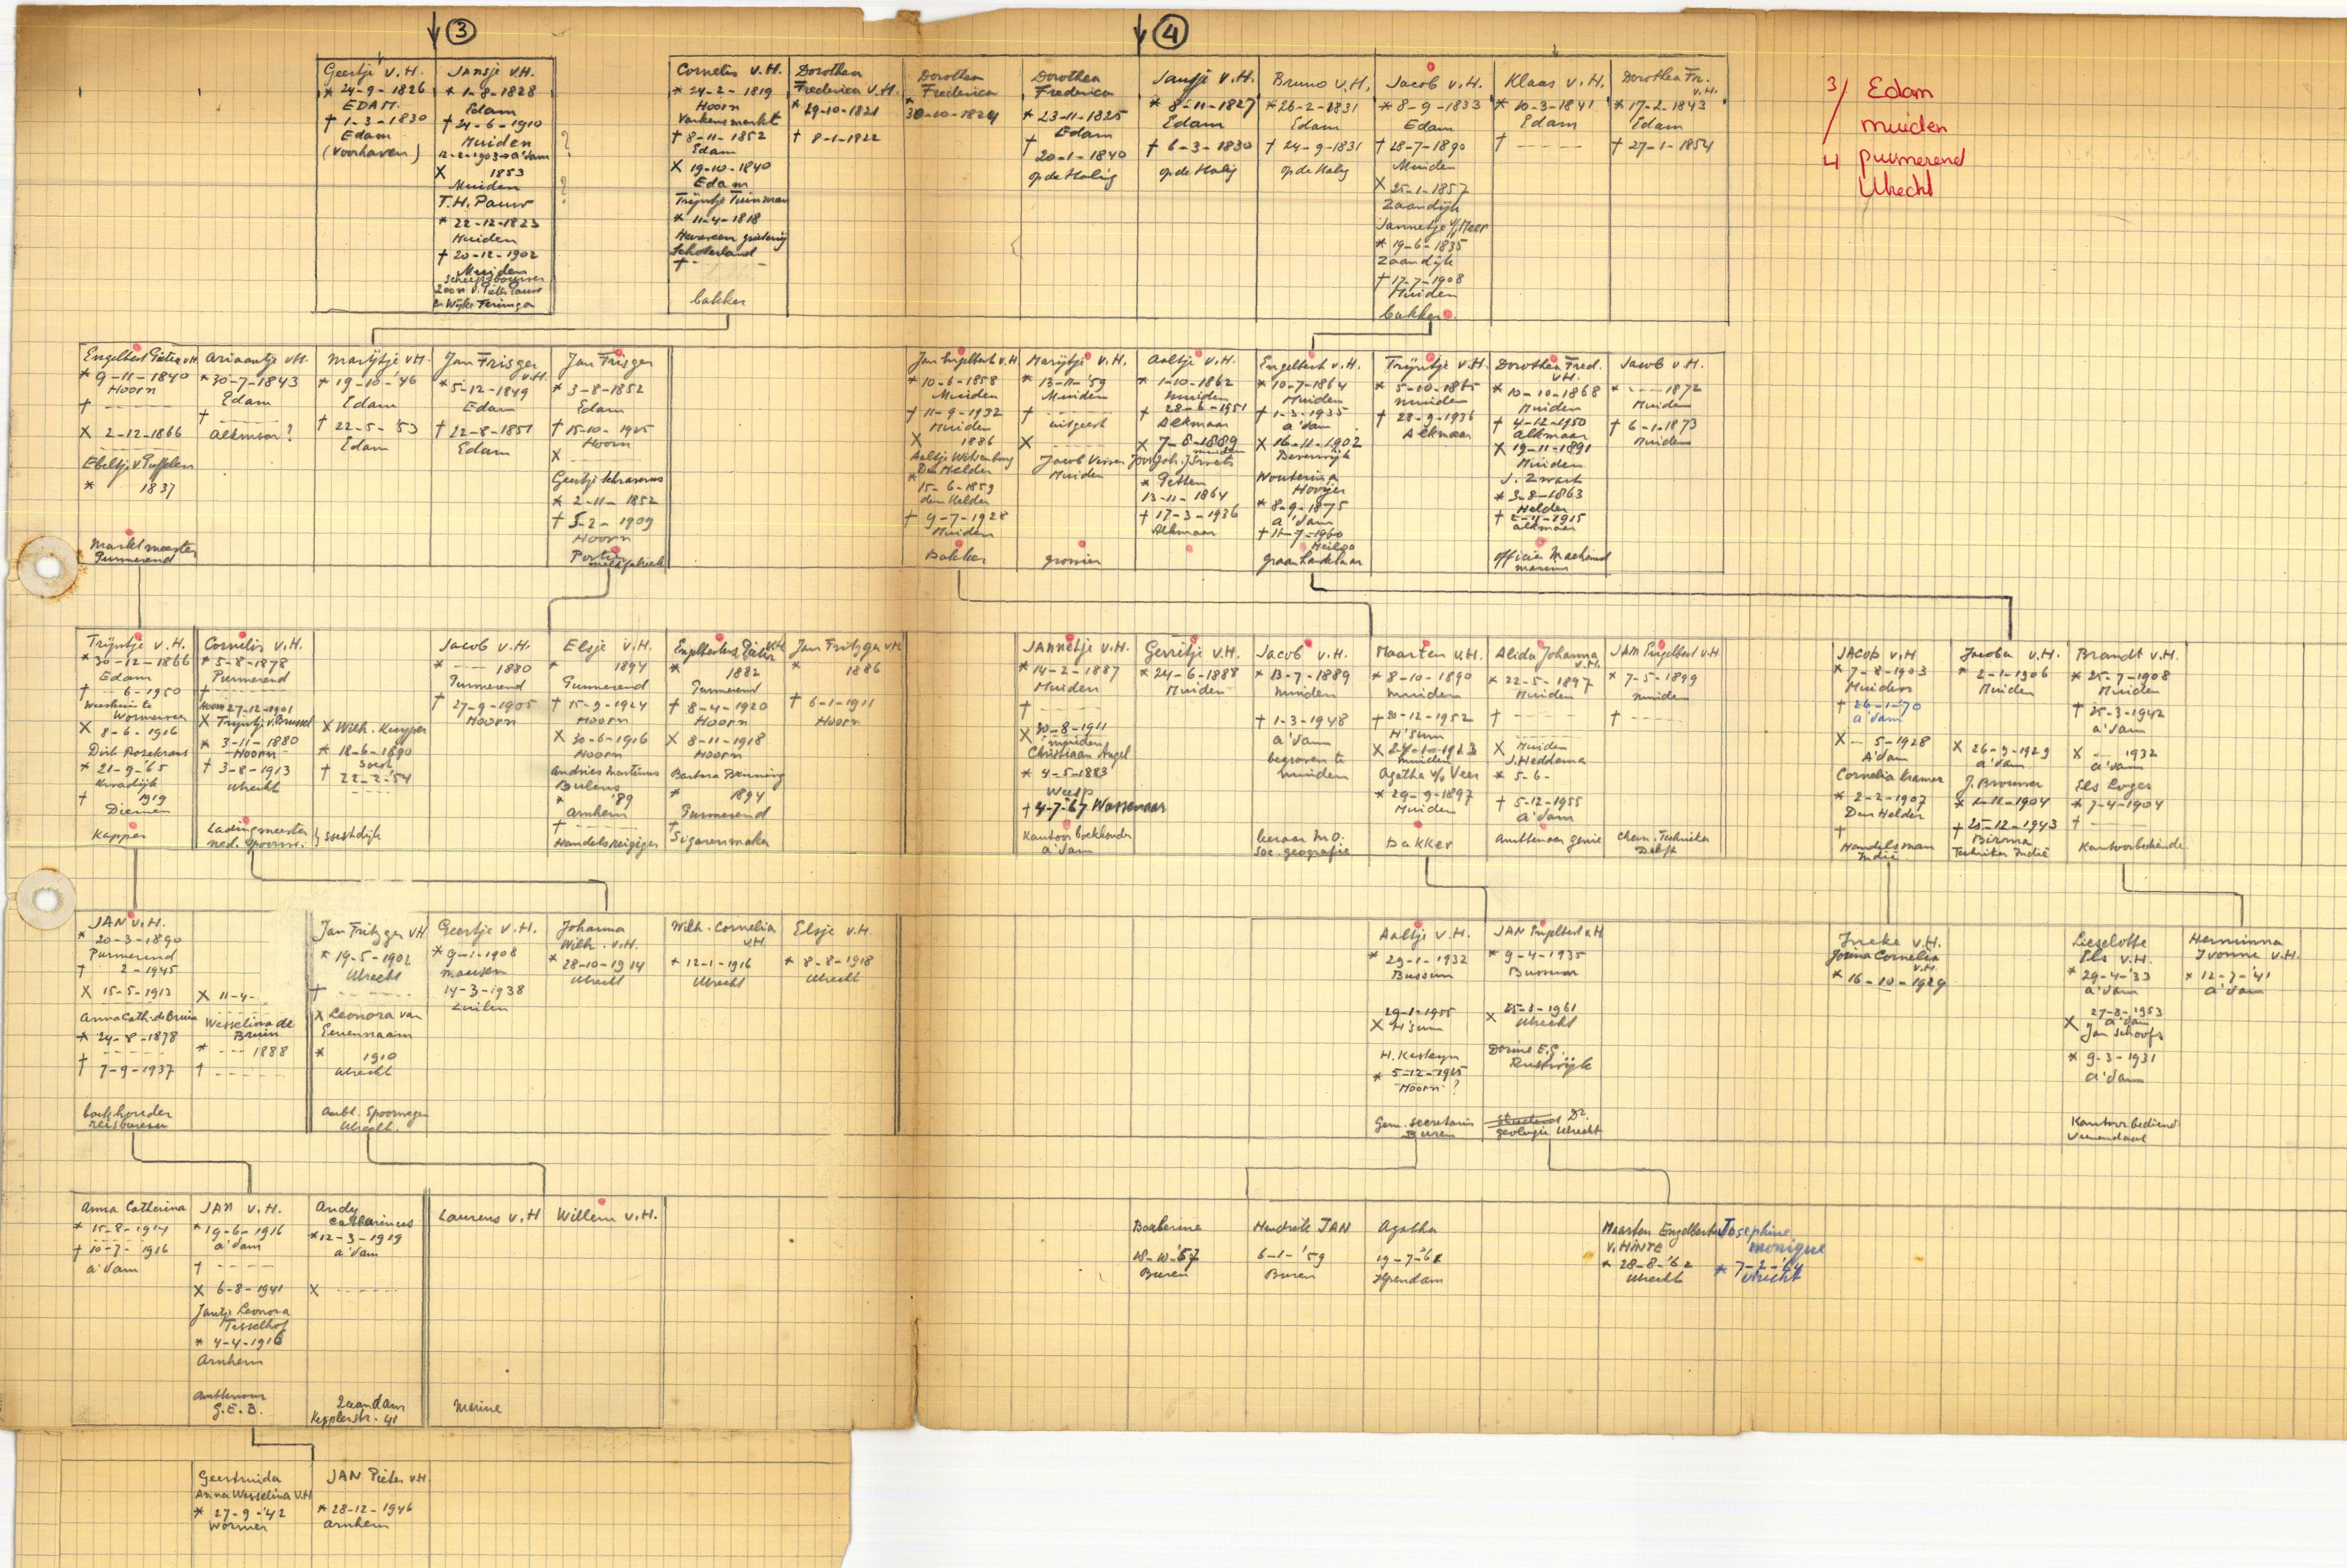 ↓ ③
Geertje v.H.
* 24-9-1826
EDAM.
† 1-3-1830
Edam
(Voorhaven)
Jansje v.H.
* 1-8-1828
Edam
† 24-6-1910
Muiden
12-2-1903 → a'dam
X 1853
Muiden
T.H. Pauw
* 22-12-1823
Muiden
† 20-12-1902
Muiden
Scheepsbouwer
zoon v. Pieter Pauw
?
?
Cornelis v.H.
* 24-2-1819
Hoorn
Varkensmarkt
† 8-11-1852
Edam
X 19-10-1840
Edam
Trijntje Tuinman
* 11-4-1818
Schoterland
† -
bakker
Dorothea
Frederica v.H.
* 29-10-1821
† 8-1-1822
↓ ④
Dorothea
Frederica
* 30-10-1824
Dorothea
Frederica
* 23-11-1825
Edam
† 20-1-1840
op de Halig
Jansje v.H.
* 8-11-1827
Edam
† 6-3-1830
op de Halig
Bruno v.H.
* 26-2-1831
Edam
† 24-9-1831
op de Halig
Jacob v.H.
* 8-9-1833
Edam
† 28-7-1890
Muiden
X 25-1-1857
Zaandijk
Jannetje v/d Meer
* 19-6-1835
Zaandijk
† 17-7-1908
Muiden
bakker
Klaas v.H.
* 10-3-1841
Edam
† -----
Dorothea Fr.
v.H.
* 17-2-1843
Edam
† 27-1-1854
3/ Edam
/ muiden
4 purmerend
Utrecht
Engelbert Pieter v.H.
* 9-11-1840
Hoorn
† -----
X 2-12-1866
Ebeltje v. Puffelen
* 1837
Marktmeester
Purmerend
Ariaantje v.H.
* 30-7-1843
Edam
† -----
alkmaar?
Marijtje v.H.
* 19-10-'46
Edam
† 22-5-'53
Edam
Jan Frisger
v.H.
* 5-12-1849
Edam
† 22-8-1851
Edam
Jan Frisger
* 3-8-1852
Edam
† 15-10-1925
Hoorn
X -----
Geertje Schravenus
* 2-11-1852
† 5-2-1909
Hoorn
Portier
melkfabriek
Jan Engelbert v.H.
* 10-6-1858
Muiden
† 11-9-1932
Muiden
X 1886
Aaltje Witsenburg
Den Helder
* 15-6-1859
den Helder
† 9-7-1928
Muiden
Bakker
Marijtje v.H.
* 13-11-'59
Muiden
† -----
uitgeest
X -----
Jacob Visser
Muiden
grossier
Aaltje v.H.
* 1-10-1862
Muiden
† 28-6-1951
Alkmaar
X 7-8-1889
muiden
* Petten
13-11-1864
† 17-3-1936
Alkmaar
Engelbert v.H.
* 10-7-1864
Muiden
† 1-3-1935
a'dam
X 16-11-1902
Beverwijk
Wouterina
Hooijer
* 8-9-1875
a'dam
† 11-7-1960
Heiloo
graanhandelaar
Trijntje v.H.
* 5-10-1865
muiden
† 28-9-1936
Alkmaar
Dorothea Fred.
v.H.
* 10-10-1868
Muiden
† 4-12-1950
alkmaar
X 19-11-1891
Muiden
J. Zwart
* 3-8-1863
Helder
† 2-11-1915
alkmaar
officier Machinist
marine
Jacob v.H.
* ---- 1872
Muiden
† 6-1-1873
Muiden
Trijntje v.H.
* 30-12-1866
Edam
† - 6-1950
Weeshuis te
Wormerveer
X 8-6-1916
Dirk Pozekrans
* 21-9-'65
Kwadijk
† 1919
Diemen
Kapper
Cornelis v.H.
* 5-8-1878
Purmerend
† -----
Hoorn 27-12-1901
X Trijntje v. Brussel
* 3-11-1880
Hoorn
† 3-8-1913
Utrecht
Ladingmeester
ned. spoorw.
X Wilh. Kuyper
* 18-6-1890
Soest
† 22-2-'54
} soestdijk
Jacob v.H.
* ---- 1880
Purmerend
† 27-9-1905
Hoorn
Elsje v.H.
* 1894
Purmerend
† 15-9-1924
Hoorn
X 30-6-1916
Hoorn
Andries Martinus
Bulens
* '89
Arnhem
† -----
Handelsreiziger
Engelbertus Pieter v.H.
* 1882
Purmerend
† 8-4-1920
Hoorn
X 8-11-1918
Hoorn
Barbara Benning
* 1894
Purmerend
†
Sigarenmaker
Jan Fritzger v.H.
* 1886
† 6-1-1911
Hoorn
JANNetje v.H.
* 14-2-1887
Muiden
† -----
X 30-8-1911
muiden
Christiaan Angel
* 4-5-1883
Weesp
† 4-7-'67 Wassenaar
Kantoor boekhouder
a'dam
Gerritje v.H.
* 24-6-1888
Muiden
Jacob v.H.
* 13-7-1889
muiden
† 1-3-1948
a'dam
begraven te
muiden
leraar M.O.
Soc. geografie
Maarten v.H.
* 8-10-1890
muiden
† 20-12-1952
H'sum
X 24-10-1923
muiden
Agatha v/d Veer
* 29-9-1897
Muiden
Bakker
Alida Johanna
v.H.
* 22-5-1897
Muiden
† -----
X Muiden
J. Heddema
* 5-6-
† 5-12-1955
a'dam
Ambtenaar genie
JAN Engelbert v.H.
* 7-5-1899
muiden
† -----
Chem. Technieker
Delft
JACOB v.H
* 7-8-1903
Muiden
† 26-1-'70
a'dam
X - 5-1928
A'dam
Cornelia Kramer
* 2-2-1907
Den Helder
†
Handelsman
Indië
Jacoba v.H.
* 2-1-1906
Muiden
X 26-9-1929
a'dam
J. Brouwer
* 1-12-1904
† 25-12-1943
Birma
Technieker Indië
Brandt v.H.
* 25-7-1908
Muiden
† 25-3-1942
a'dam
X -- 1932
a'dam
Els Luger
* 7-4-1904
† -----
Kantoorbediende
JAN v.H.
* 20-3-1890
Purmerend
† 2-1945
X 15-5-1913
Anna Cath. de Bruin
* 24-8-1878
† -----
† 7-9-1937
boekhouder
reisbureau
X 11-4-
Wesselina de
Bruin
* --- 1888
† -----
Jan Fritzger v.H
* 19-5-1902
Utrecht
† -----
X Leonora van
Eeuennaam
* 1910
Utrecht
Ambt. Spoorwegen
Utrecht.
Geertje v.H.
* 9-1-1908
maarsen
14-3-1938
Zuilen
Johanna
Wilh. v.H.
* 28-10-1914
Utrecht
Wilh. Cornelia
v.H.
* 12-1-1916
Utrecht
Elsje v.H.
* 8-8-1918
Utrecht
Aaltje v.H.
* 29-1-1932
Bussum
29-1-1955
X H'sum
H. Kesteyn
* 5-12-1925
Hoorn?
Gem. secretaris
Buren
JAN Engelbert v.H
* 9-4-1935
Bussum
X 25-3-1961
Utrecht
Dorine E.G.
Rustwijk
student Dr.
geologie Utrecht
Ineke v.H.
Josina Cornelia
v.H.
* 16-10-1929
Lieselotte
Els v.H.
* 29-4-'33
a'dam
27-8-1953
X a'dam
Jan Schoofs
* 9-3-1931
a'dam
Kantoorbediend
Veenendaal
Herminna
Yvonne v.H.
* 12-7-'41
a'dam
Anna Catherina
* 15-8-1914
† 10-7-1916
a'dam
JAN v.H.
* 19-6-1916
a'dam
† -----
X 6-8-1941
Jantje Leonora
Tesselhof
* 4-4-1916
Arnhem
Ambtenaar
G.E.B.
Andy
Catharinus
* 12-3-1919
a'dam
X -----
Zaandam
Keplerstr. 41
Laurens v.H
marine
Willem v.H.
Barberine
18-10-'57
Buren
Hendrik JAN
6-1-'59
Buren
Agatha
19-7-'61
Ilpendam
Maarten Engelbertus
v. HINTE
* 28-8-'62
Utrecht
Josephine
monique
* 7-2-'64
Utrecht
Geertruida
Anna Wesselina v.H
* 27-9-'42
Wormer
JAN Pieter v.H.
* 28-12-1946
Arnhem